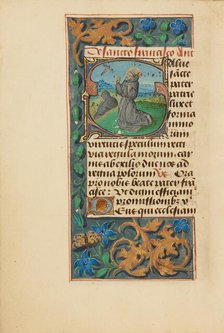 De sancto francisco ant
Salue
sancte
pater
patrie
lux et
forma
minoru
Virtutis speculum recti
via regula morum car
nis ab exilio duc nos ad
regna polorum Ora
pro nobis beate pater fra
cisce Vt digni efficiam
promissionibus
Deus qui ecclesiam